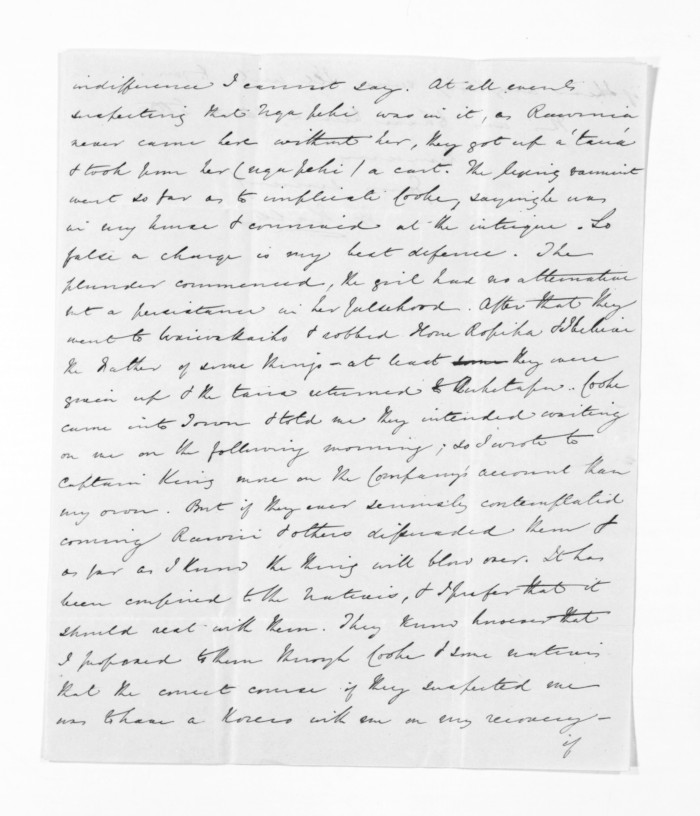 indifference I cannot say. At all events
suspecting that Ngapehi was in it, as Rawinia
never came here without her, they got up a 'taua'
& took from her (Ngapehi) a cart. The lying varmint
went so far as to implicate Cooke, saying he was
in my house & connived at the intrigue. So
false a charge is my best defence. The
plunder commenced, the girl had no alternative
but a persistance in her falsehood. After that they
went to Waiwakaiho & robbed Hone Ropiha & I believe
the Father of some things – at least some they were
given up & the taua returned to . Cooke
came into Town & told me they intended waiting
on me on the following morning; so I wrote to
Captain King more on the Company's account than
my own. But if they ever seriously contemplated
coming Rawiri & others dissuaded them &
as far as I know the thing will blow over. It has
been confined to the Natives, & I prefer that it
should rest with them. They know however that
I proposed to them through Cooke & some natives
that the correct course if they suspected me
was to have a Korero with me on my recovery –
if